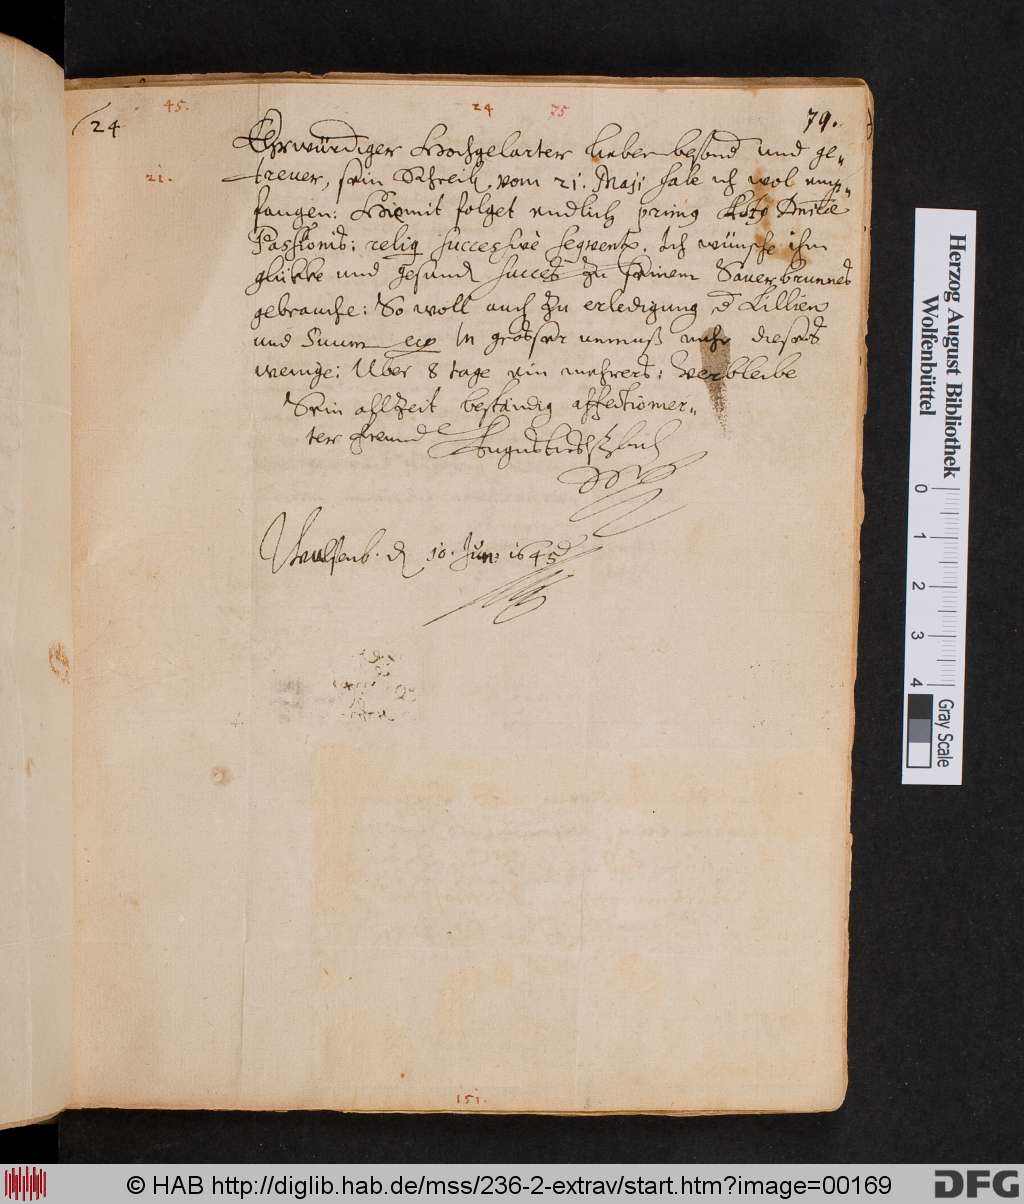 45.
24
75
24
79.
Ehrwürdiger Hochgelarter lieber besond und ge-
21.
trewer, sein Schreib. vom 21. Maji habe ich wol emp-
fangen: Hiemit folget endlich
Passionis: reliq successivè seqvent. Ich wünsche ihm
glükke und gesund succes zu seinem Sauerbrunnes
gebrauche: So woll auch zu erledigung d Lillien
und Suum In grosser unmuß mehr dieses
wenige: Uber 8 tage ein mehrers: Verbleibe
Sein allzeit bestendig affectionier-
ter freund Augustus
Wulfenb. d 10. Jun: 1645
151.
Herzog August Bibliothek
Wolfenbüttel
0
1
2
3
4
Gray Scale
© HAB http://diglib.hab.de/mss/236-2-extrav/start.htm?image=00169
DFG